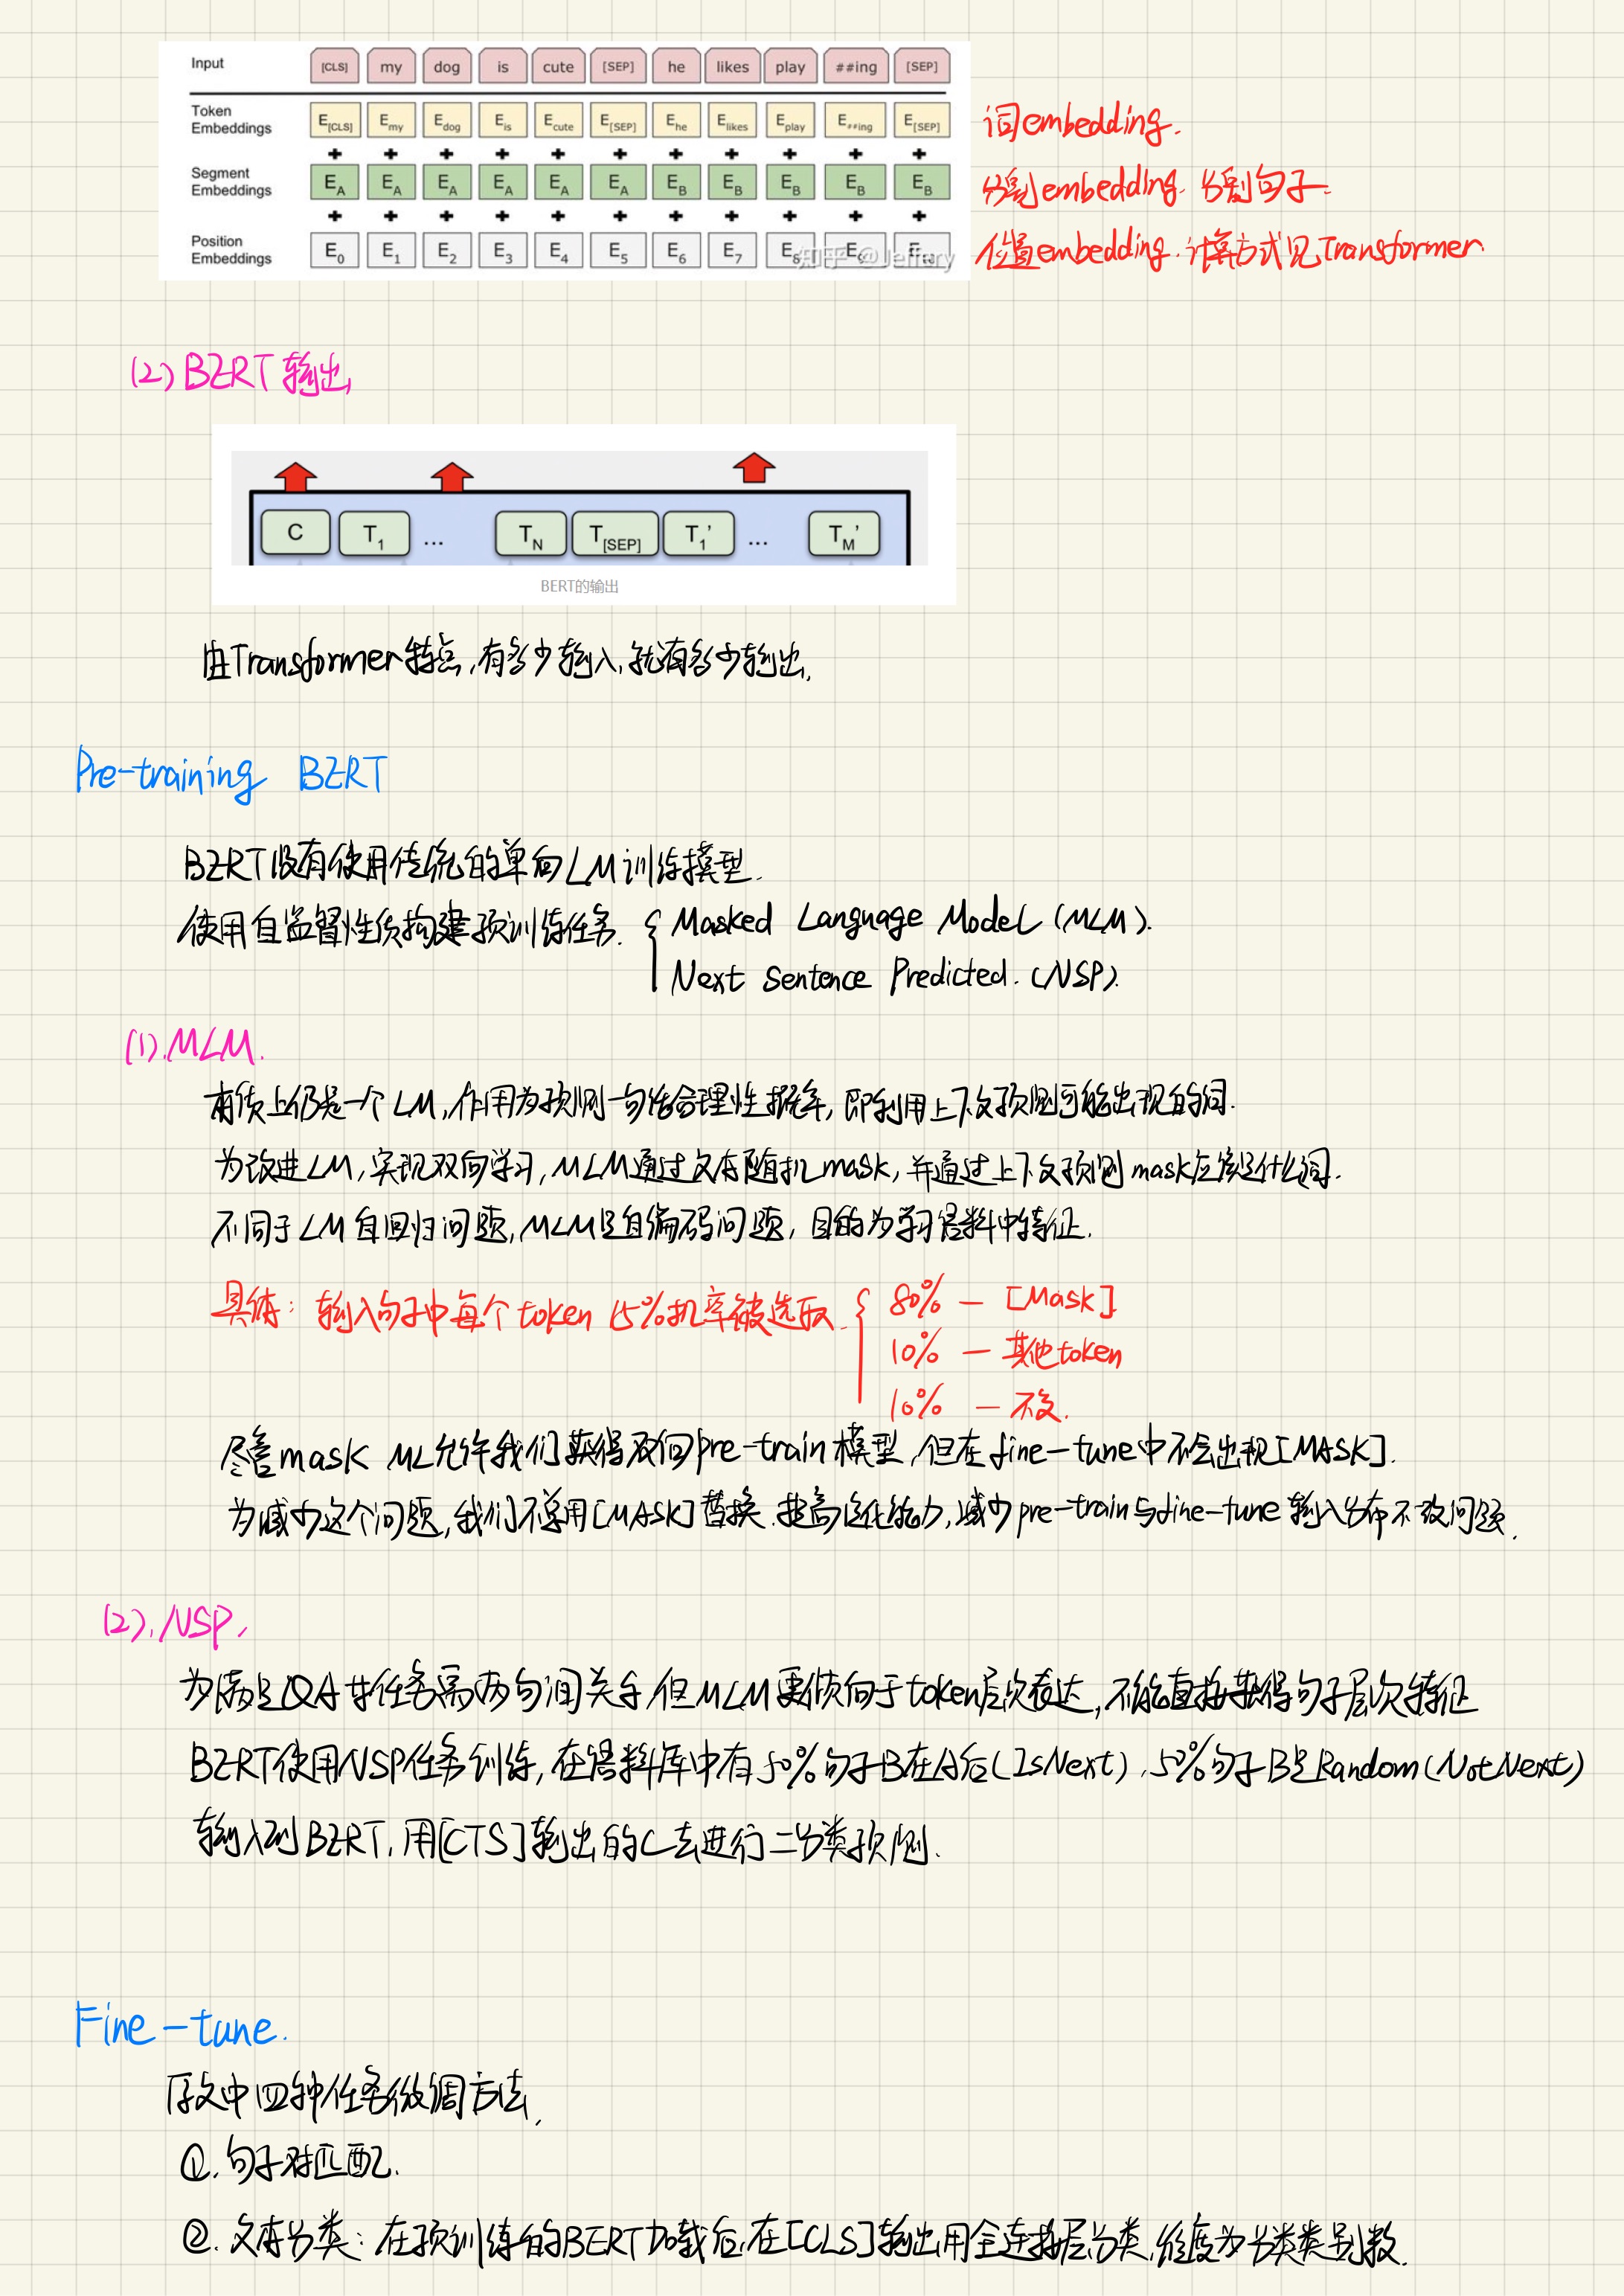 Input [CLS] my dog is cute [SEP] he likes play ##ing [SEP]
Token Embeddings E[CLS] Emy Edog Eis Ecute E[SEP] Ehe Elikes Eplay E##ing E[SEP] 词embedding.
+ + + + + + + + + + +
Segment Embeddings EA EA EA EA EA EA EB EB EB EB EB 分割embedding. 分割句子.
+ + + + + + + + + + +
Position Embeddings E0 E1 E2 E3 E4 E5 E6 E7 E8 E9 E10 位置embedding. 计算方式见Transformer
知乎 @Jeffery
(2) BERT 输出
C T1 ... TN T[SEP] T1' ... TM'
BERT的输出
由Transformer特点,有多少输入,就有多少输出.
Pre-training BERT
BERT没有使用传统的单向LM训练模型.
使用自监督性质构建预训练任务. { Masked Language Model (MLM).
Next Sentence Predicted. (NSP).
(1).MLM.
本质上仍是一个LM,作用为预测一句话合理性概率,即利用上下文预测可能出现的词.
为改进LM,实现双向学习,MLM通过文本随机mask,并通过上下文预测mask应该是什么词.
不同于LM自回归问题,MLM是自编码问题,目的为学习语料中特征.
具体: 输入句子中每个token 15%机率被选取. { 80% — [Mask]
10% — 其他token
10% — 不变.
尽管mask ML允许我们获得双向pre-train模型,但在fine-tune中不会出现[MASK].
为减少这个问题,我们不总用[MASK]替换.提高泛化能力,减少pre-train与fine-tune输入分布不一致问题.
(2).NSP.
为满足QA等任务需两句间关系,但MLM更倾向于token层次表达,不能直接获得句子层次特征
BERT使用NSP任务训练,在语料库中有50%句子B在A后(IsNext),50%句子B是Random(NotNext)
输入到BERT,用[CTS]输出的C去进行二分类预测.
Fine-tune.
原文中四种任务微调方法.
①.句子对匹配.
②.文本分类: 在预训练的BERT加载后,在[CLS]输出用全连接层分类,维度为分类类别数.